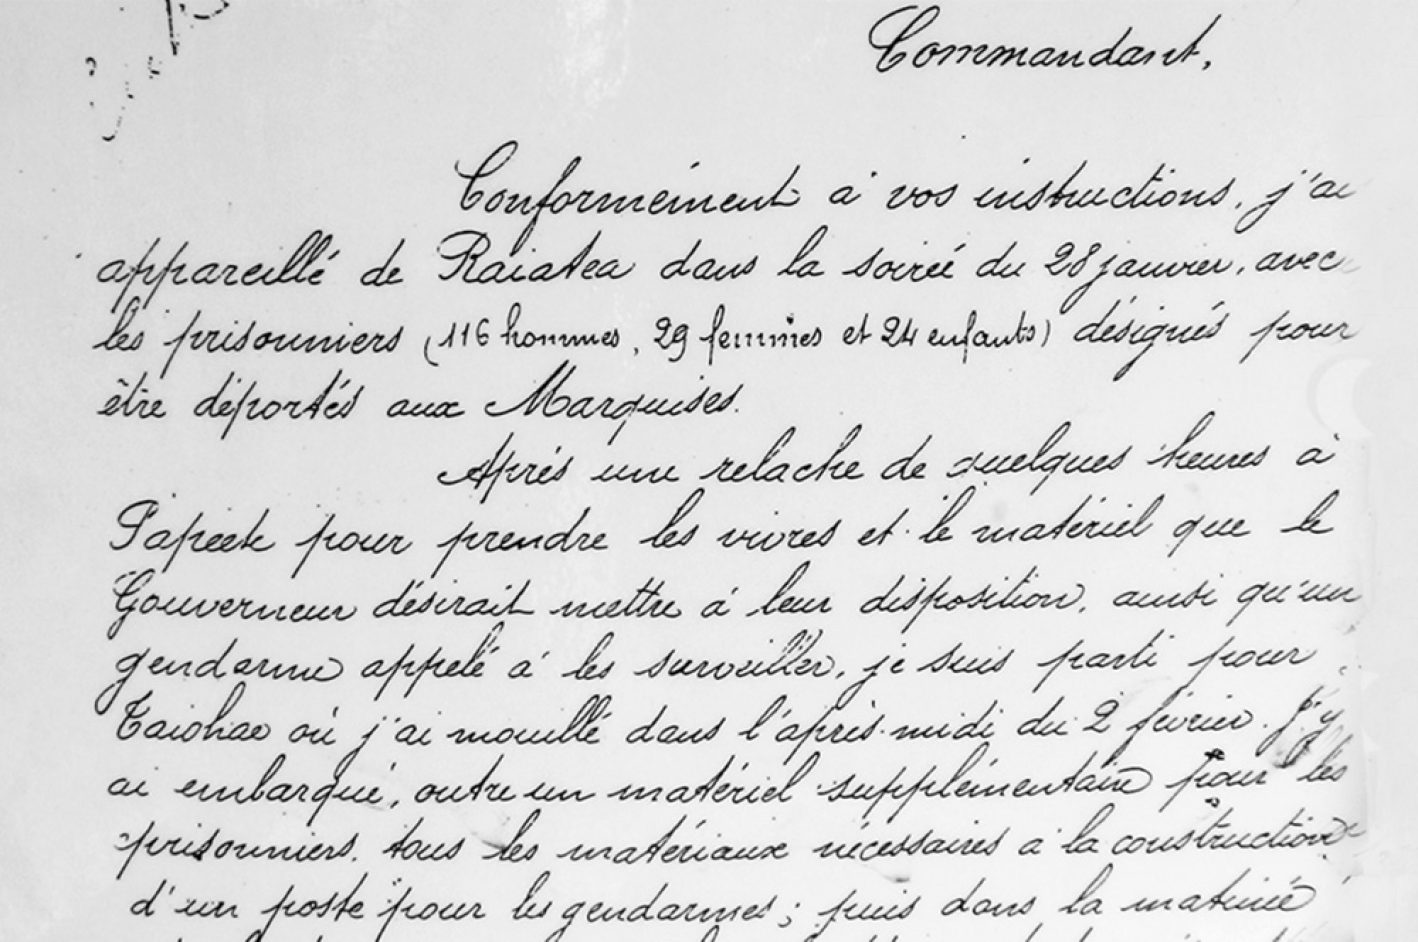 Commandant,
Conformément à vos instructions, j'ai
appareillé de Raiatea dans la soirée du 28 janvier, avec
les prisonniers (116 hommes, 29 femmes et 24 enfants) désignés pour
être déportés aux Marquises.
Après une relache de quelques heures à
Papeete pour prendre les vivres et le matériel que le
Gouverneur désirait mettre à leur disposition, ainsi qu'un
gendarme appelé à les surveiller, je suis parti pour
Taiohae où j'ai mouillé dans l'après-midi du 2 février. J'y
ai embarqué, outre un matériel supplémentaire pour les
prisonniers, tous les matériaux nécessaires à la construction
d'un poste pour les gendarmes; puis dans la matinée